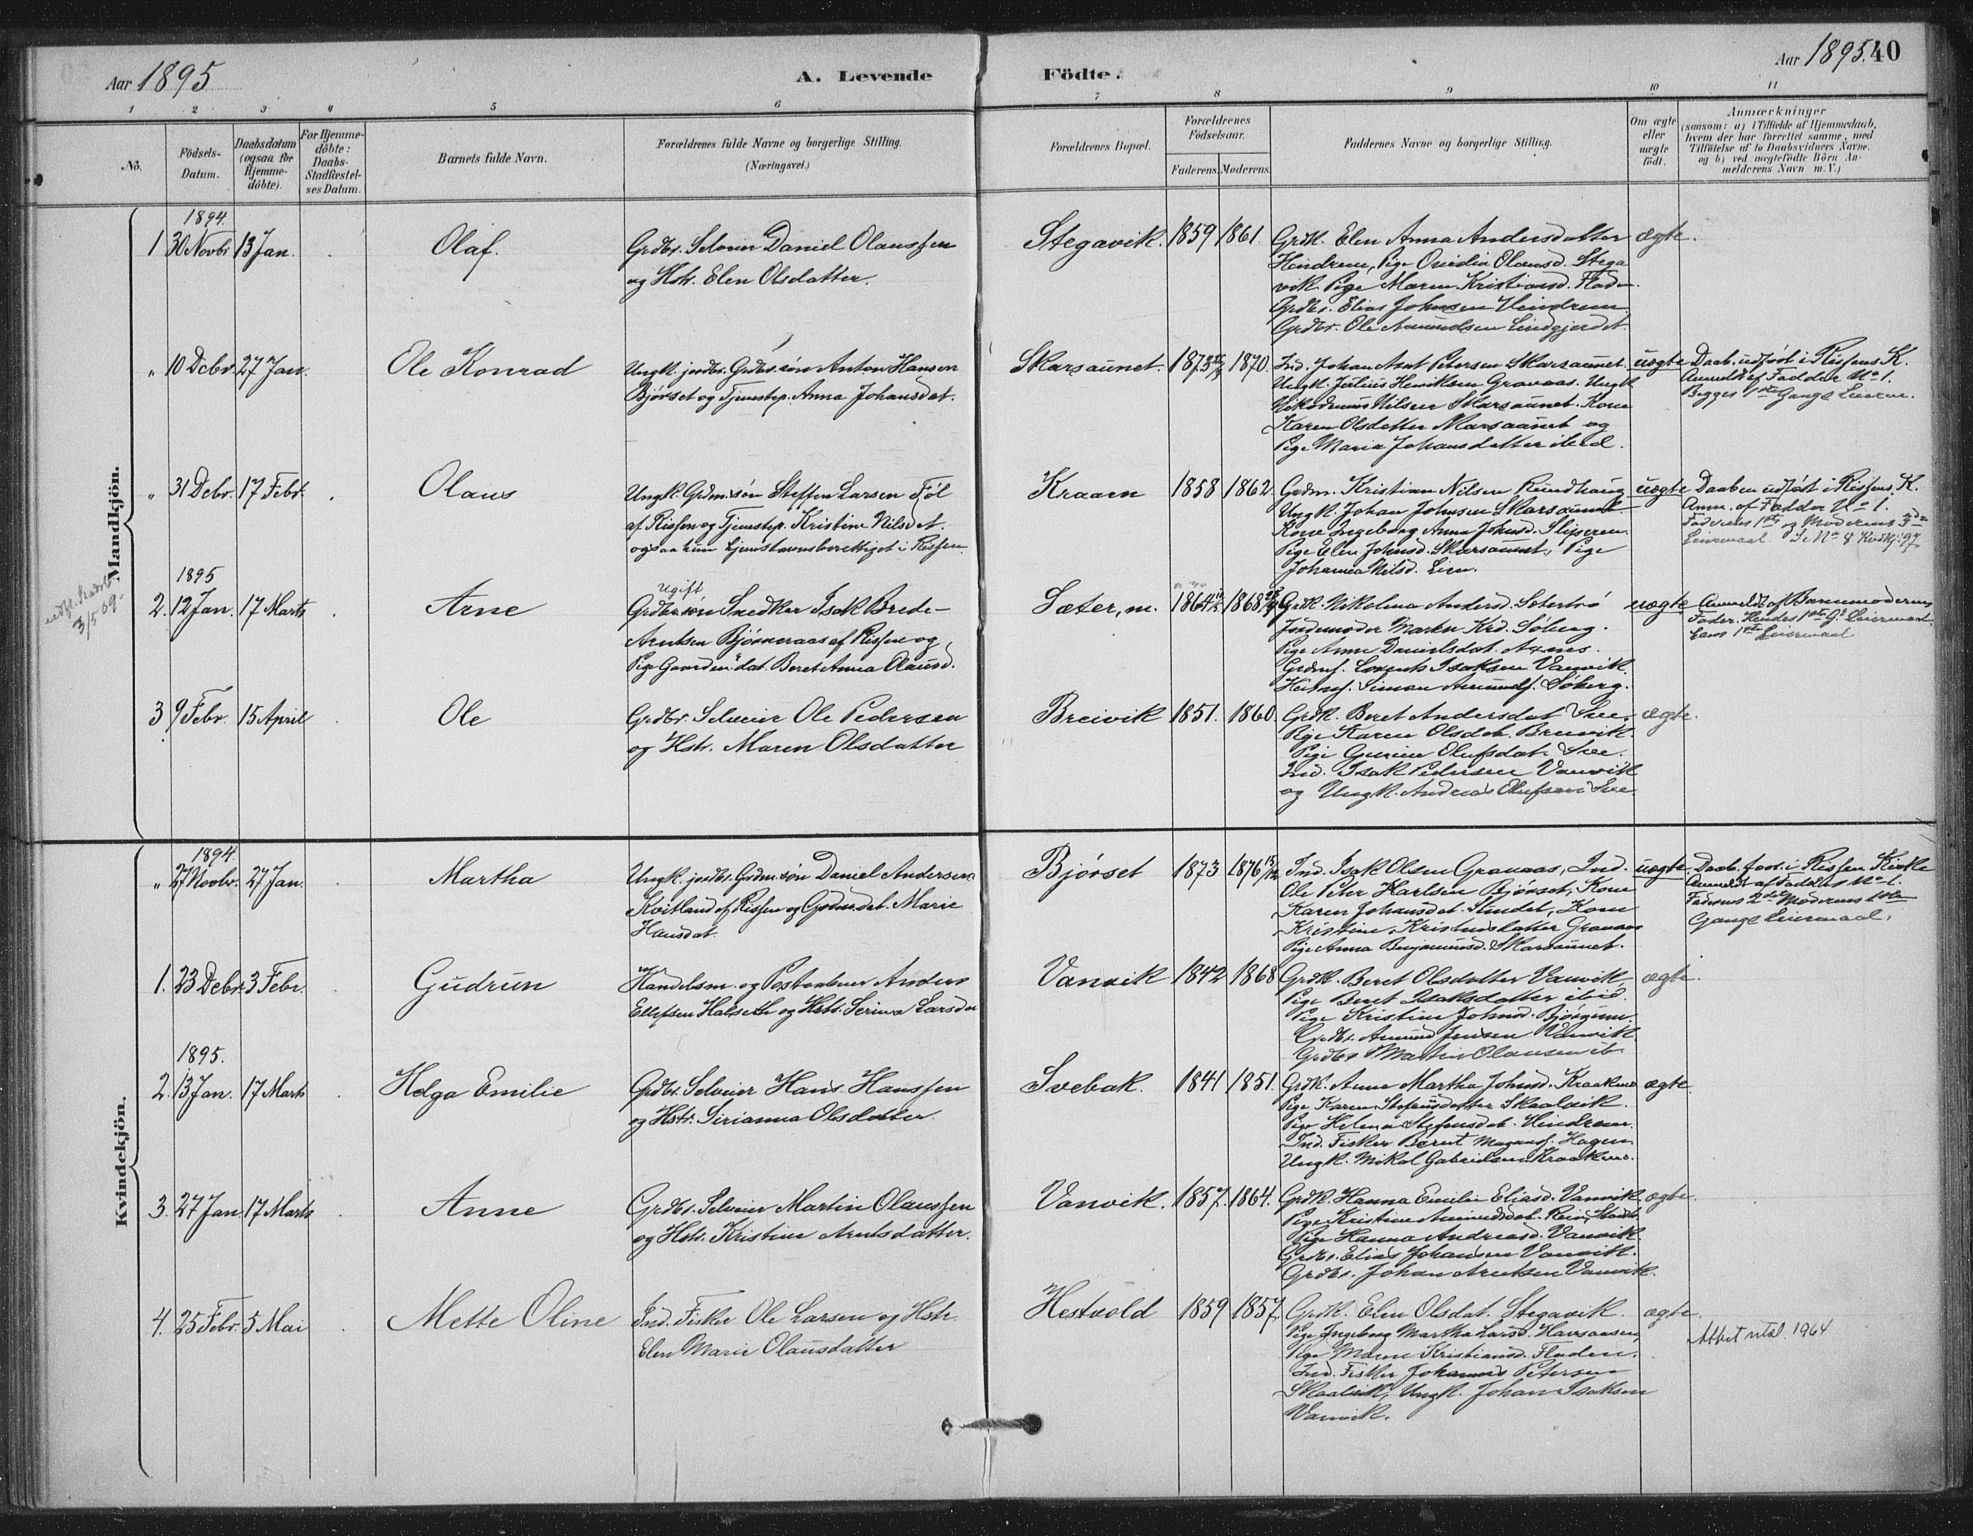 Aar 1895
A. Levende
Födte.
Aar 1895.
40
1 2 3 4 5 6 7 8 9 10 11
No.
Födsels-
Datum.
Daabsdatum
(ogsaa för
Hjemme-
döbte).
For Hjemme-
döbte:
Daabs-
Stadfæstel-
ses Datum.
Barnets fulde Navn.
Forældrenes fulde Navne og borgerlige Stilling.
(Næringsvei.)
Forældrenes Bopæl.
Forældrenes
Födselsaar.
Faderens. Moderens.
Faddernes Navne og borgerlige Stilling.
Om ægte
eller
uægte
födt.
Anmærkninger
(saasom: a) i Tilfælde af Hjemmedaab,
hvem der har forrettet samme, med
Tilföielse af to Daabsvidners Navne,
og b) ved uægtefödte Börn An-
melderens Navn m. V.)
Mandkjön.
1894
1 30 Novbr 13 Jan. Olaf. Grdbr. Selveier Daniel Olaussen
og Hstr. Elen Olsdatter.
Stegavik. 1859 1861.
Grdk. Elen Anna Andersdatter
Hindrem, Pige Ovidia Olausd. Stega
vik Pige Maren Kristiansd. Fladen.
Grdbr. Elias Johnsen Hindrem
Grdbr. Ole Amundsen Lindgjerdet.
ægte.
" 10 Debr. 27 Jan. Ole Konrad Ungk. jordbr. Grdbr.søn Anton Hansen
Bjørset og Tjenestep. Anna Johansdat.
Skarsaunet. 1873 1870.
Ind. Johan Arnt Petersen Skarsaunet.
Ungk. Julius Henriksen Gravaas. Ungk
Nikodemus Nilsen Skarsaunet. Kone
Karen Olsdatter Marsaunet og
Pige Maria Johansdatter ibid.
uægte
Daab. udført i Rissens K.
Anmeldt af Fadder No 1.
Begges 1ste Gangs Leierm.
" 31 Debr. 17 Febr. Olaus Ungk. Grdm.søn Steffen Larsen Føl
af Rissen og Tjenestep. Kristine Nilsdat.
ogsaa hun hjemstavnsberettiget i Rissen.
Kraaen 1858 1862.
Grdm. Kristian Nilsen Reindhaug
Ungk. Johan Johnsen Skarsaunet
Kone Ingeborg Anna Johnsd.
Pige Elen Johnsd. Skarsaunet, Pige
Johanna Nilsd. Lien.
uægte
Daaben udført i Rissens K.
Anm. af Fadder No 1.
Faderens 1ste og Moderens 3die
Leiermaal Se No 8 Kvkj. 97
1895
3/5 09.
2. 12 Jan. 17 Marts Arne
Ugift
Grdbr.søn Snedker Isak Brede-
Arntsen Bjørneraas af Rissen og
Pige Gaardm.dat. Beret Anna Olausd.
Sæter, m. 1864 1868
Grdk. Nikolina Andersd. Sæterbø
Jordemoder Marta Krd. Søberg.
Pige Anne Danielsdat. Axnes.
Grdmf. Lorents Isaksen Vanvik
Simon Amundf. Søberg.
uægte
Anmeldt af Barnemoderens
Fader. Hendes 1ste G. Leiermaal
Hans 1ste Leiermaal
3 9 Febr. 15 April Ole Grdbr. Selveier Ole Pedersen
og Hstr. Maren Olsdatter
Breivik 1851. 1860.
Grdk. Beret Andersdat. Svee.
Pige Karen Olsdat. Breivik
Pige Gurine Olufsdat. Svee.
Ind. Isak Pedersen Vanvik
og Ungk. Andreas Olufsen Svee
ægte.
Kvindekjön.
1894.
" 27 Novbr. 27 Jan. Martha Ungk. jordbr. Grdm.søn Daniel Andersen
Kvitland af Rissen og Grdm.dat. Marie
Hansdat.
Bjørset 1873 1876 15/12
Ind. Isak Olsen Gravaas, Ind.
Ole Peter Karlsen Bjørset, Kone
Karen Johansdat. Slindet, Kone
Kristine Kristensdatter Gravaas
Pige Anna Benjaminsd. Skarsaunet.
uægte
Daab. forr. i Rissen Kirke
Anmeldt af Fadder No 1.
Faderens 2den Moderens 1ste
Gangs Leiermaal.
1. 23 Debr. 3 Febr. Gudrun Handelsm. og Postaabner Anders
Ellefsen Halseth og Hstr. Serina Larsda
Vanvik 1842 1868
Grdk. Beret Olsdatter Vanvik,
Pige Beret Isaksdatter ibid.
Pige Kristine Johnsd. Bjørgum.
Grdbr. Amund Jensen Vanvik
Grdbr Martin Olausen ib
ægte.
1895.
2. 13 Jan. 17 Marts Helga Emilie Grdbr. Selveier Hans Hanssen
og Hstr. Sirianna Olsdatter.
Svebak. 1841 1851.
Grdk. Anne Martha Johnsd. Kraakmo
Pige Karen Stefensdatter Skaalvik.
Pige Helena Stefensdat. Hindrem
Ind. Fisker Bernt Magnusf. Hagen
Ungk. Mikal Gabrielsen Kraakmo.
ægte
3. 27 Jan 17 Marts Anne Grdbr. Selveier Martin Olaussen
og Hstr. Kristine Arntsdatter.
Vanvik. 1857. 1864.
Grdk. Hanna Emilie Eliasd. Vanvik
Pige Kristine Amundsdat. Rein, Stadsb.
Pige Hanna Andreasd. Vanvik
Grdbr. Elias Johansen Vanvik.
Grdbr. Johan Arntsen Vanvik.
ægte.
4. 25 Febr. 5 Mai Mette Oline Ind. Fisker Ole Larsen og Hstr.
Elen Marie Olausdatter
Hestvold 1859 1857.
Grdk. Elen Olsdat. Stegavik.
Pige Ingeborg Martha Larsd. Havsaasen,
Pige Maren Kristiansd. Fladen.
Ind. Fisker Johannes Petersen
Skaalvik, Ungk. Johan Isaksen
Vanvik.
ægte.
Attest utst. 1964